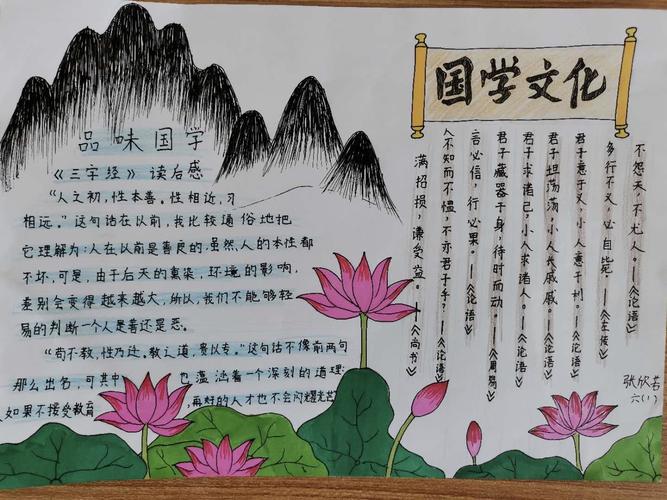 品味国学
《三字经》读后感
"人之初,性本善。性相近,习
相远。"这句话在以前,我比较通俗地把
它理解为:人在以前是善良的,虽然,人的本性都
不坏,可是,由于后天的熏染,环境的影响,
差别会变得越来越大,所以,我们不能够轻
易的判断一个人是善还是恶。
"苟不教,性乃迁,教之道,贵以专。"这句话不像前两句
那么出名,可其中也蕴涵着一个深刻的道理:
人如果不接受教育,再好的人才也不会闪耀光芒
国学文化
不怨天,不尤人。—《论语》
多行不义,必自毙。—《左传》
君子意于义,小人意于利。—《论语》
君子坦荡荡,小人长戚戚。—《论语》
君子求诸己,小人求诸人。—《论语》
君子藏器于身,待时而动。—《周易》
言必信,行必果。—《论语》
人不知而不愠,不亦君子乎?—《论语》
满招损,谦受益。—《尚书》
张欣若
六(1)